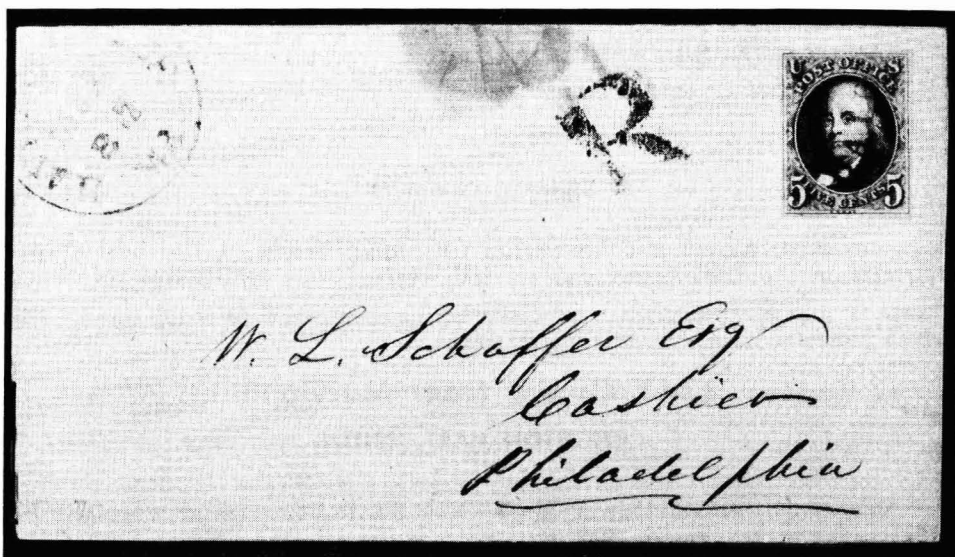 R
U S
POST OFFICE
5 FIVE CENTS 5
W. L. Schaffer Esq
Cashier
Philadelphia